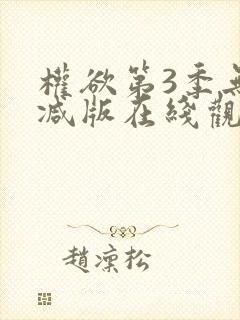 權欲第3季無
减版在綫觀
趙凜松